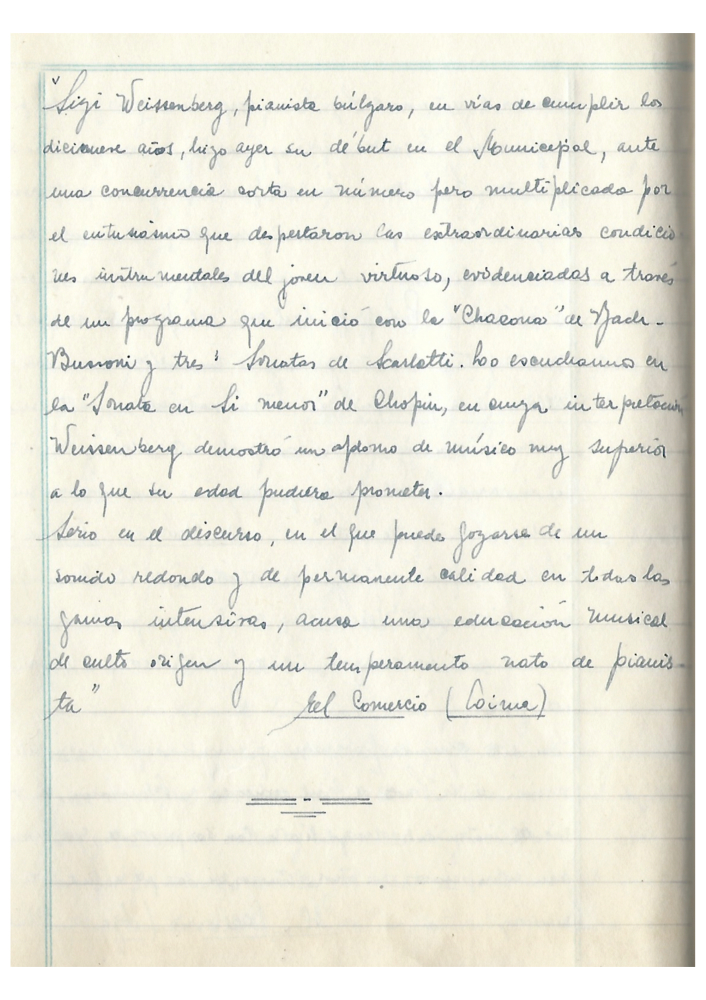 "Sigi Weissenberg, pianista búlgaro, en vías de cumplir los
diecinueve años, hizo ayer su début en el Municipal, ante
una concurrencia corta en número pero multiplicada por
el entusiasmo que despertaron las extraordinarias condicio
nes instrumentales del joven virtuoso, evidenciadas a través
de un programa que inició con la "Chacona" de Bach-
Bussoni y tres Sonatas de Scarlatti. Lo escuchamos en
la "Sonata en Si menor" de Chopin, en cuya interpretación
Weissenberg demostró un aplomo de músico muy superior
a lo que su edad pudiera prometer.
Serio en el discurso, en el que puede gozarse de un
sonido redondo y de permanente calidad en todas las
gamas intensivas, acusa una educación musical
de culto origen y un temperamento nato de pianis-
ta" El Comercio (Lima)